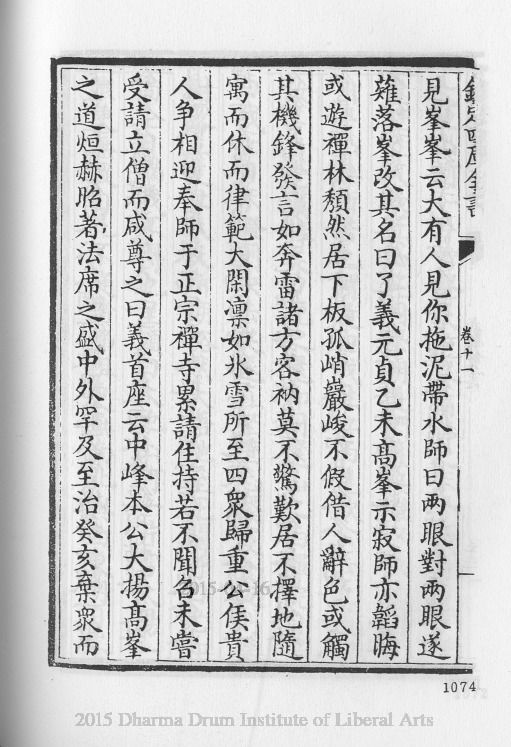 欽定四庫全書
卷十一
見峯峯云大有人見你拖泥帶水師曰两眼對两眼遂
薙落峯改其名曰了義元貞乙未髙峯示寂師亦韜晦
或遊禪林頽然居下板孤峭巖峻不假借人辭色或觸
其機鋒發言如奔雷諸方客衲莫不驚歎居不擇地隨
寓而休而律範大閑凛如氷雪所至四衆歸重公侯貴
人争相迎奉師于正宗禪寺累請住持若不聞名未嘗
受請立僧而咸尊之曰義首座云中峰本公大揚髙峯
之道烜赫昭著法席之盛中外罕及至治癸亥棄衆而
1074
2015 Dharma Drum Institute of Liberal Arts